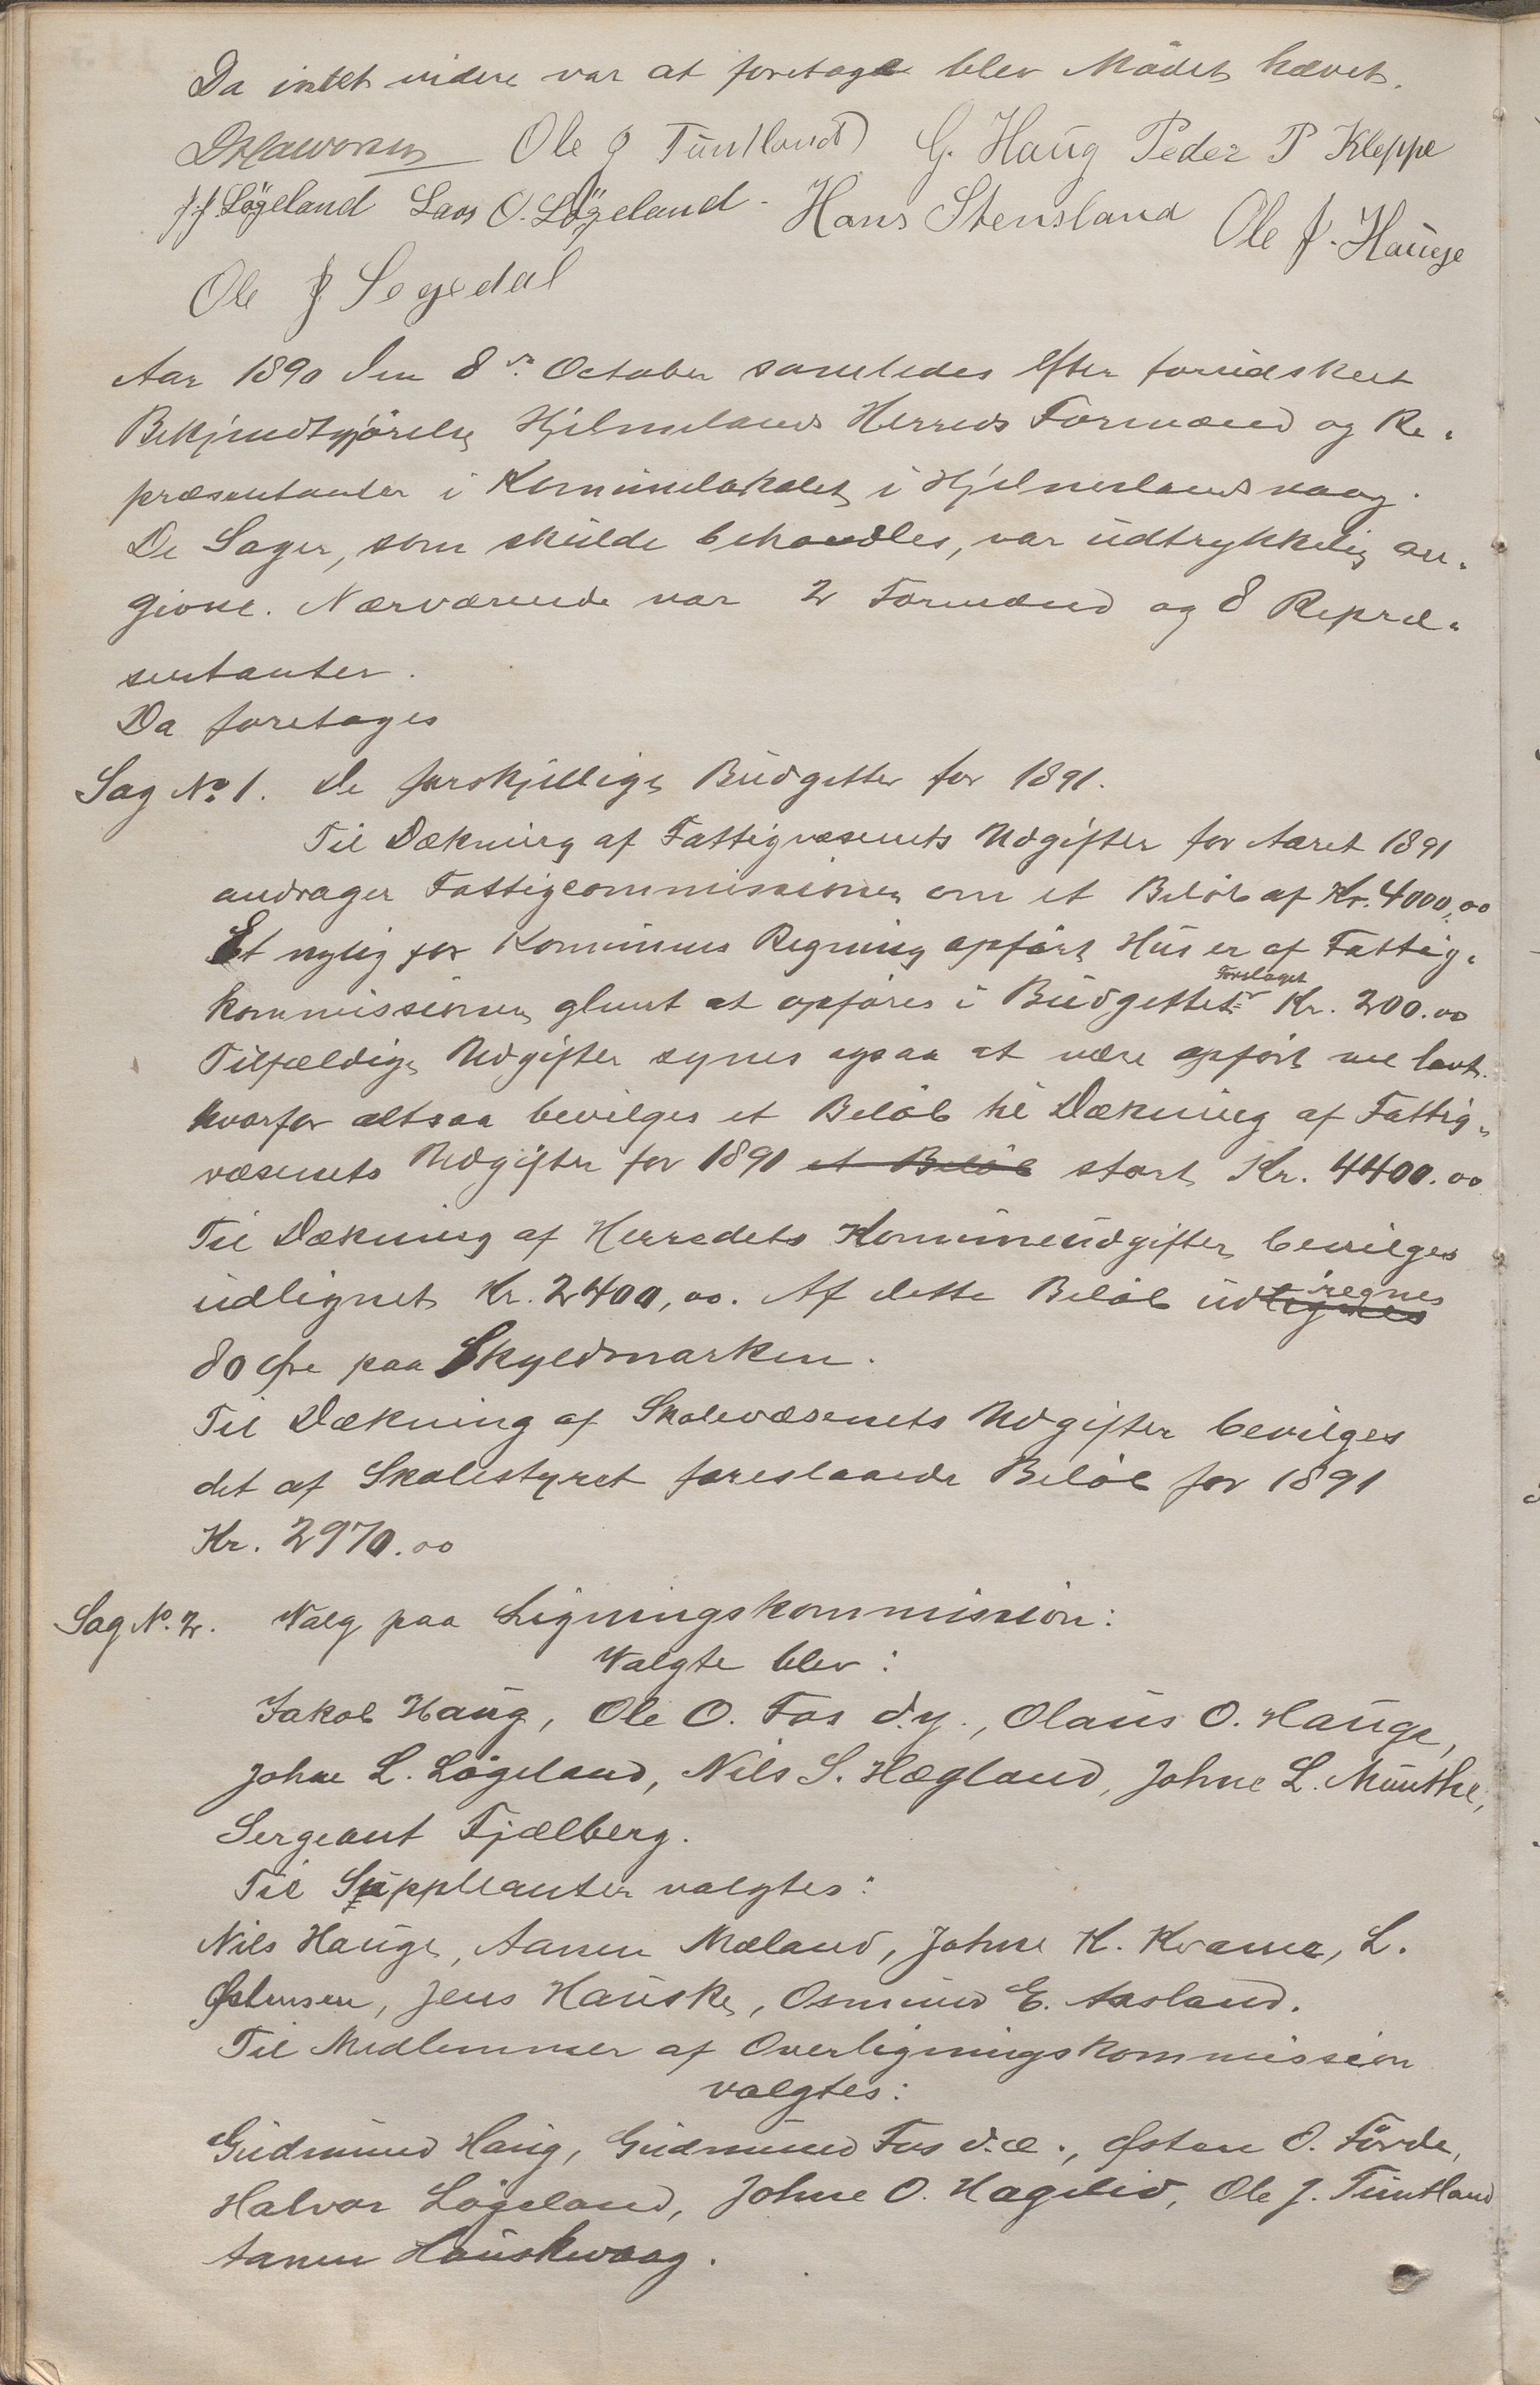 Da intet videre var at foretage blev Mödet hævet.
Ole J Tuntland G. Haug Peder P Kleppe
J. J. Lögeland Lars O. Lögeland. Hans Stensland Ole J. Hauge
Ole J Segedal
Aar 1890 den 8de October samledes efter forudskeet
Bekjendtgjörelse Hjelmelands Herreds Formænd og Re-
præsentanter i Kommunelokalet i Hjelmelandsvaag.
De Sager, som skulde behandles, var udtrykkelig an-
givne. Nærværende var 2 Formænd og 8 Repræ-
sentanter.
Da foretages
Sag No. 1. De forskjellige Budgetter for 1891.
Til Dækning af Fattigvæsenets Udgifter for Aaret 1891
andrager Fattigcommissionen om et Beløb af Kr. 4000,00
Et nylig for Kommunens Regning opført Hus er af Fattig-
kommissionen glemt at opføres i Budgettet Forslaget Kr. 200.00
Tilfældige Udgifter synes ogsaa at være opført vel lavt.
hvorfor altsaa bevilges et Beløb til Dækning af Fattig-
væsenets Udgifter for 1891 et Beløb stort Kr. 4400.00
Til Dækning af Herredets Kommuneudgifter bevilges
udlignet Kr. 2400,00. Af dette Beløb udlignes iregnes
80 Øre paa Skyldmarken.
Til Dækning af Skolevæsenets Udgifter bevilges
det af Skolestyret foreslaaede Beløb for 1891
Kr. 2970.00
Sag No. 2. Valg paa Ligningskommission:
Valgte blev:
Jakob Haug, Ole O. Fos d.y., Olaus O. Hauge,
Johne L. Lögeland, Nils S. Hægland, Johne L. Munthe,
Sergeant Fjælberg.
Til Suppleanter valgtes:
Nils Hauge, Aanen Mæland, Johne K. Kvame, L.
Østensen, Jens Hauske, Osmund E. Aasland.
Til Medlemmer af Overligningskommission
valgtes:
Gudmund Haug, Gudmund Fos d.æ., Østen O. Förde,
Halvor Lögeland, Johne O. Hagelid, Ole J. Tuntland
Aanen Hauskevaag.